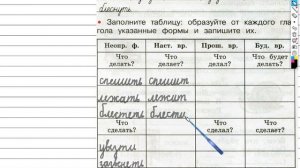 блеснуть
• Заполните таблицу: образуйте от каждого гла-
гола указанные формы и запишите их.
Неопр. ф. Наст. вр. Прош. вр. Буд. вр.
Что делать? Что делает? Что делал? Что будет делать?
спешить спешит
лежать лежит
блестеть блести
Что сделать? Что сделал? Что сделает?
увезти